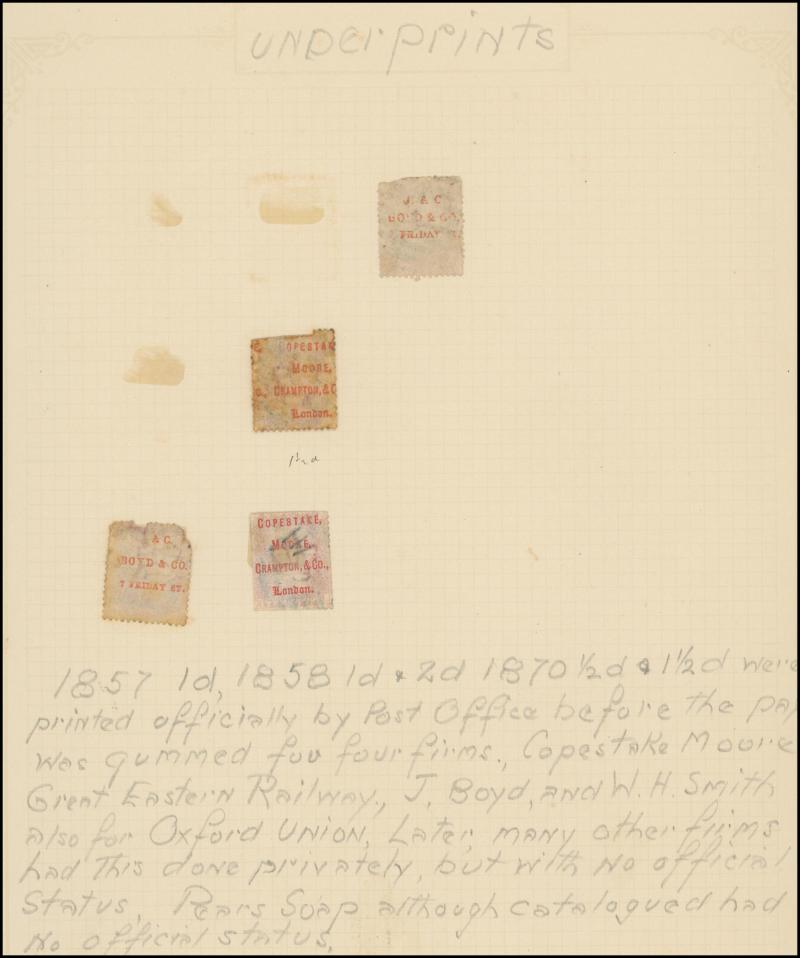 underprints
J. & C
BOYD & CO.
FRIDAY
COPESTAK
MOORE,
O., CRAMPTON, & C
London.
1½d
& C.
BOYD & CO.
7 FRIDAY ST.
COPESTAKE,
MOORE,
CRAMPTON, & CO.,
London.
1857 1d, 1858 1d & 2d 1870 ½d & 1½d were
printed officially by Post Office before the pap
was gummed for four firms., Copestake Moore
Great Eastern Railway., J. Boyd, and W. H. Smith
also for Oxford Union. Later, many other firms
had this done privately, but with no official
status. Pears Soap although catalogued had
no official status.